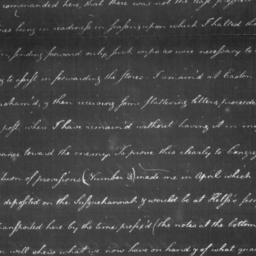 recommended here, that there was not the least prospect
being in readiness in consequence on which I halted the
in sending forward only such corps as were necessary to
to assist in forwarding the stores. I remain'd at Easton
& then receiving some flattering letters, proceeded
post, where I have remain'd without having it in my
toward the enemy. To prove this clearly to Congress
of provisions (Number 3) made me in April which
deposited on the Susquehannah, & would be at
transported here by the time prefix'd (the notes at the bottom
will shew what we now have on hand & of what